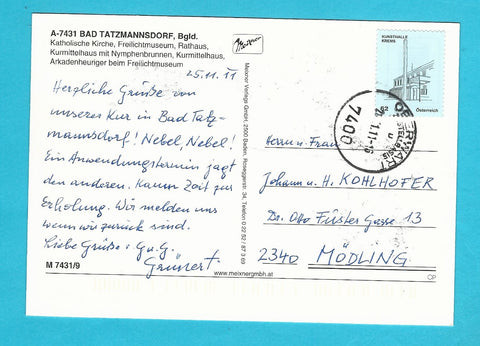 A-7431 BAD TATZMANNSDORF, Bgld.
Katholische Kirche, Freilichtmuseum, Rathaus,
Kurmittelhaus mit Nymphenbrunnen, Kurmittelhaus,
Arkadenheuriger beim Freilichtmuseum
25.11.11
Herzliche Grüße von
unserer Kur in Bad Tatz-
mannsdorf! Nebel, Nebel!
Ein Anwendungstermin jagt
den anderen. Kaum Zeit zur
Erholung. Wir melden uns
wenn wir zurück sind.
Liebe Grüße
Grünert
M 7431/9
Meixner
Meixner Verlags GmbH, 2500 Baden, Roseggerstr. 34, Telefon 0 22 52 / 87 3 69
www.meixnergmbh.at
KUNSTHALLE
KREMS
62
Österreich
OBERWART
7400
Herrn u. Frau
Johann u. H. KOHLHOFER
Dr. Otto Füster Gasse 13
2340 MÖDLING